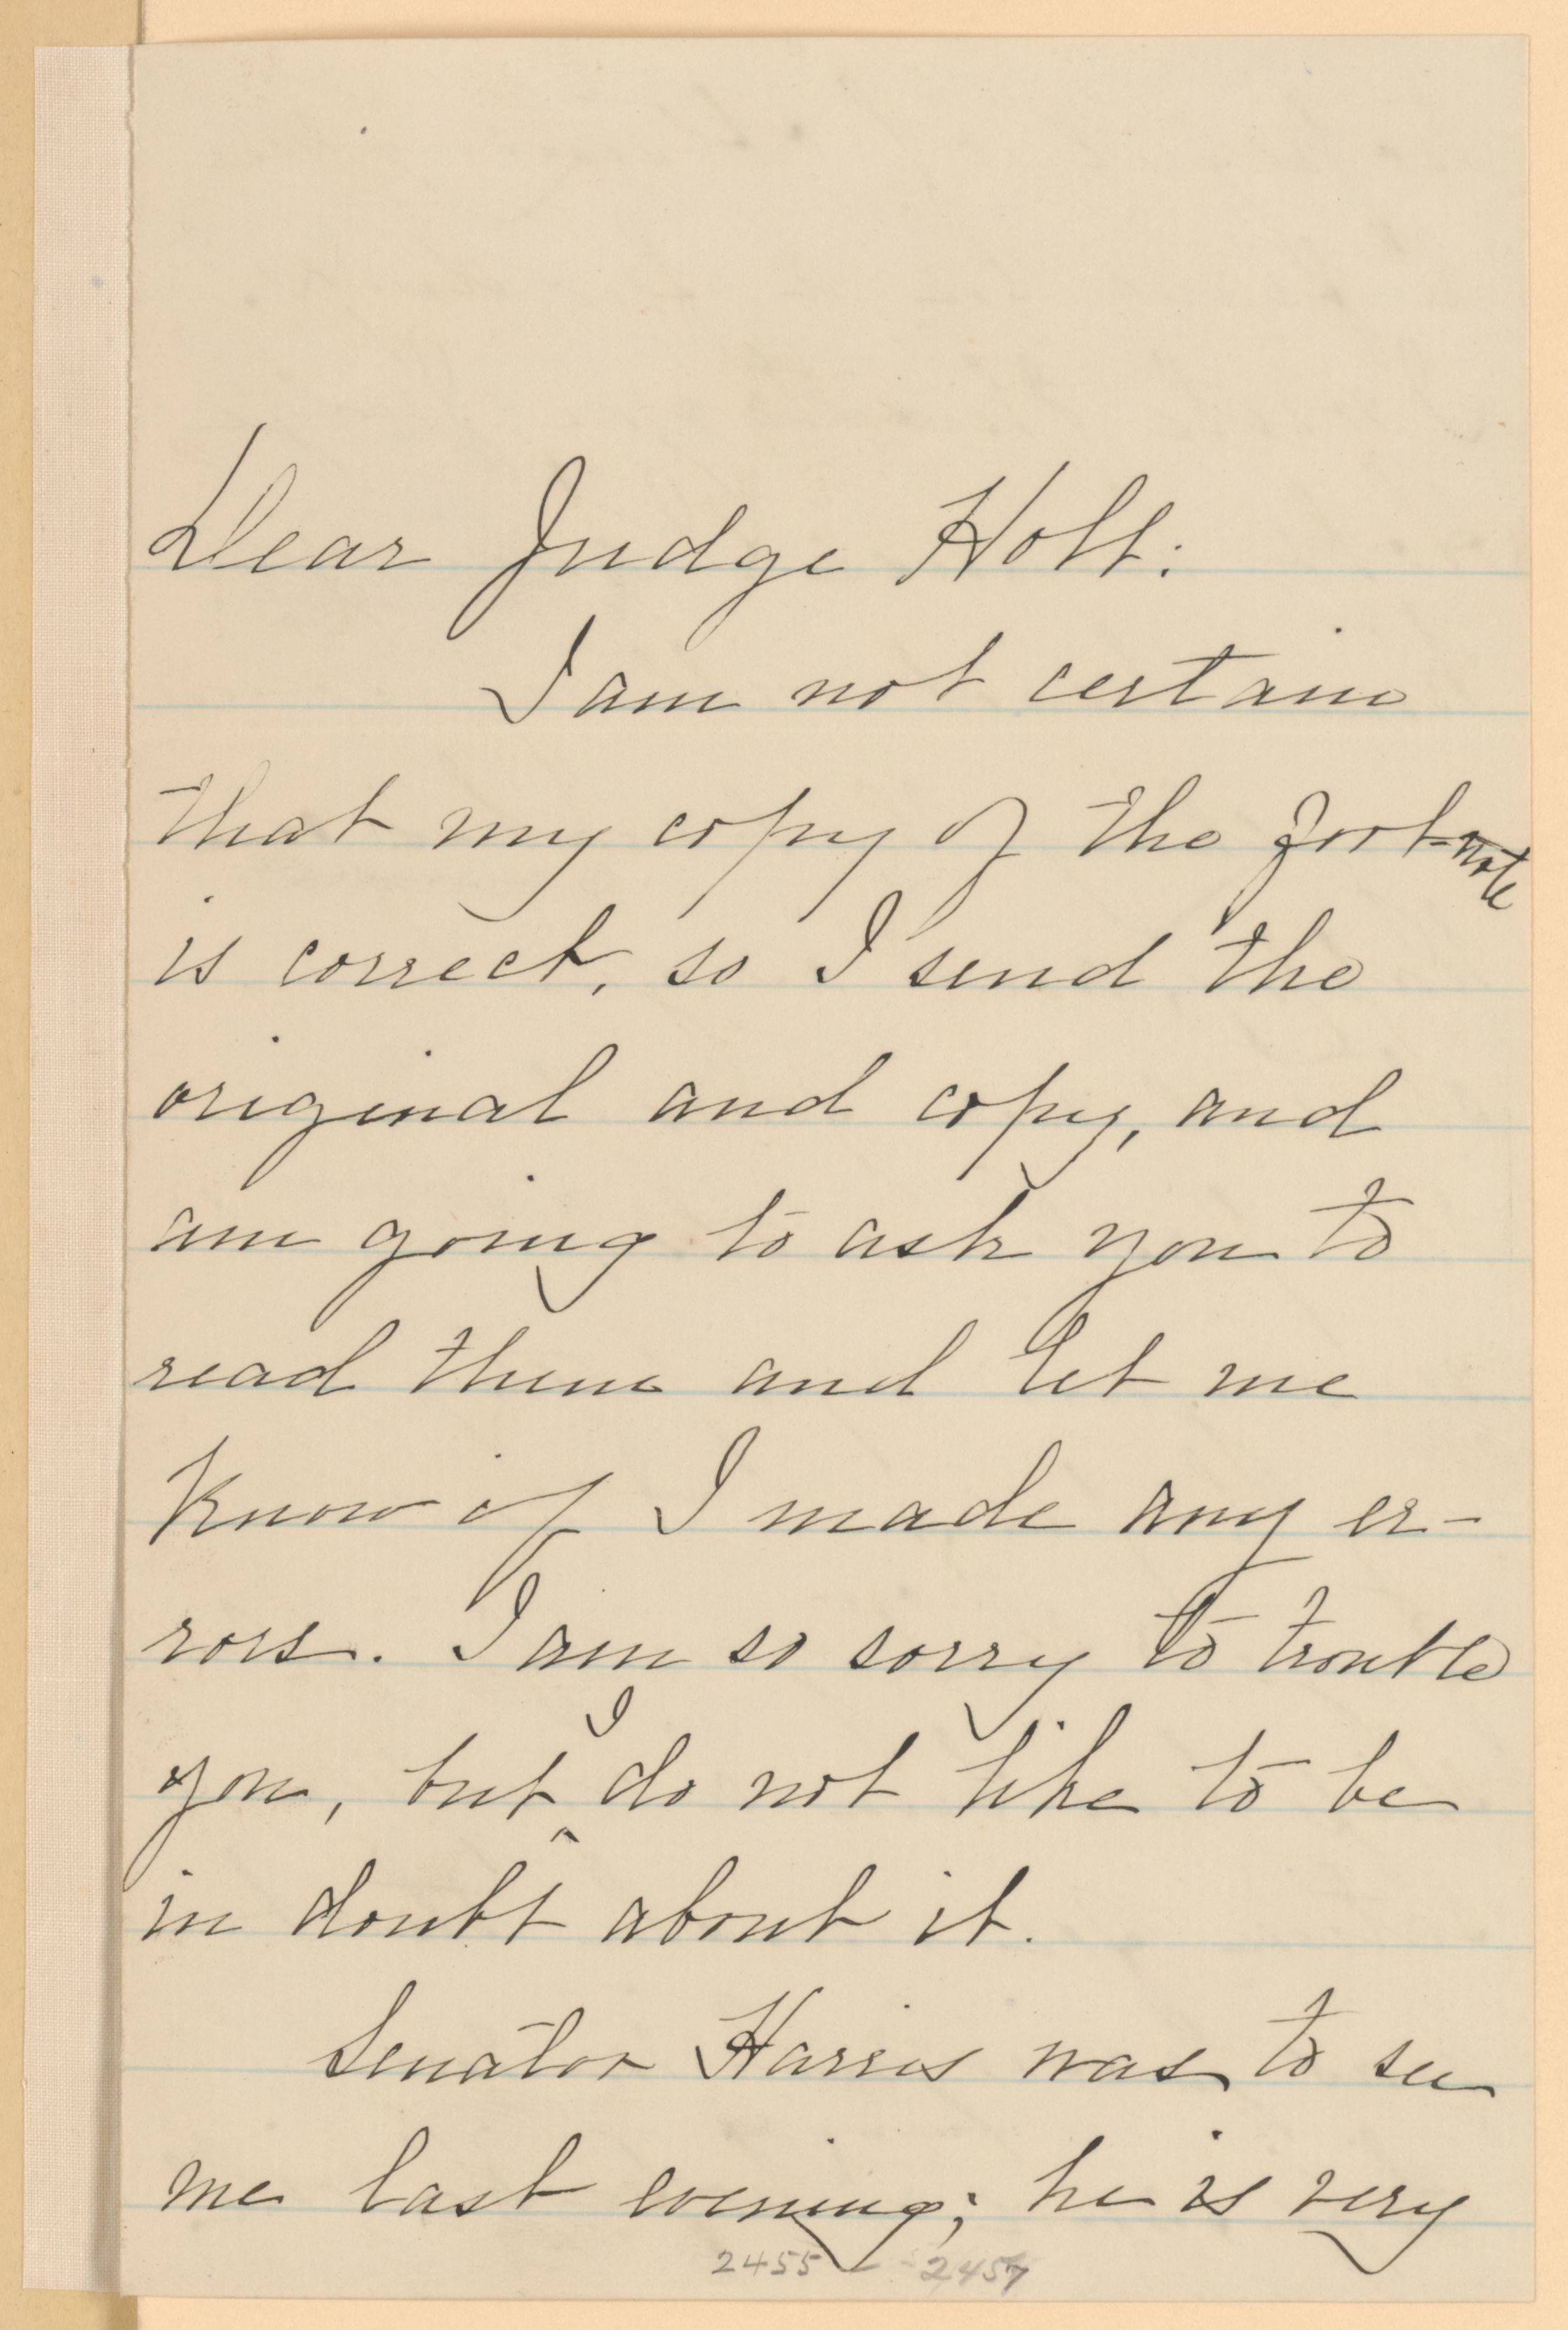 Dear Judge Holt:
I am not certain
that my copy of the foot-note
is correct, so I send the
original and copy, and
am going to ask you to
read them and let me
know if I made any er-
rors. I am so sorry to trouble
you, but ^I do not like to be
in doubt about it.
Senator Harris was to see
me last evening; he is very
2455 - 2457